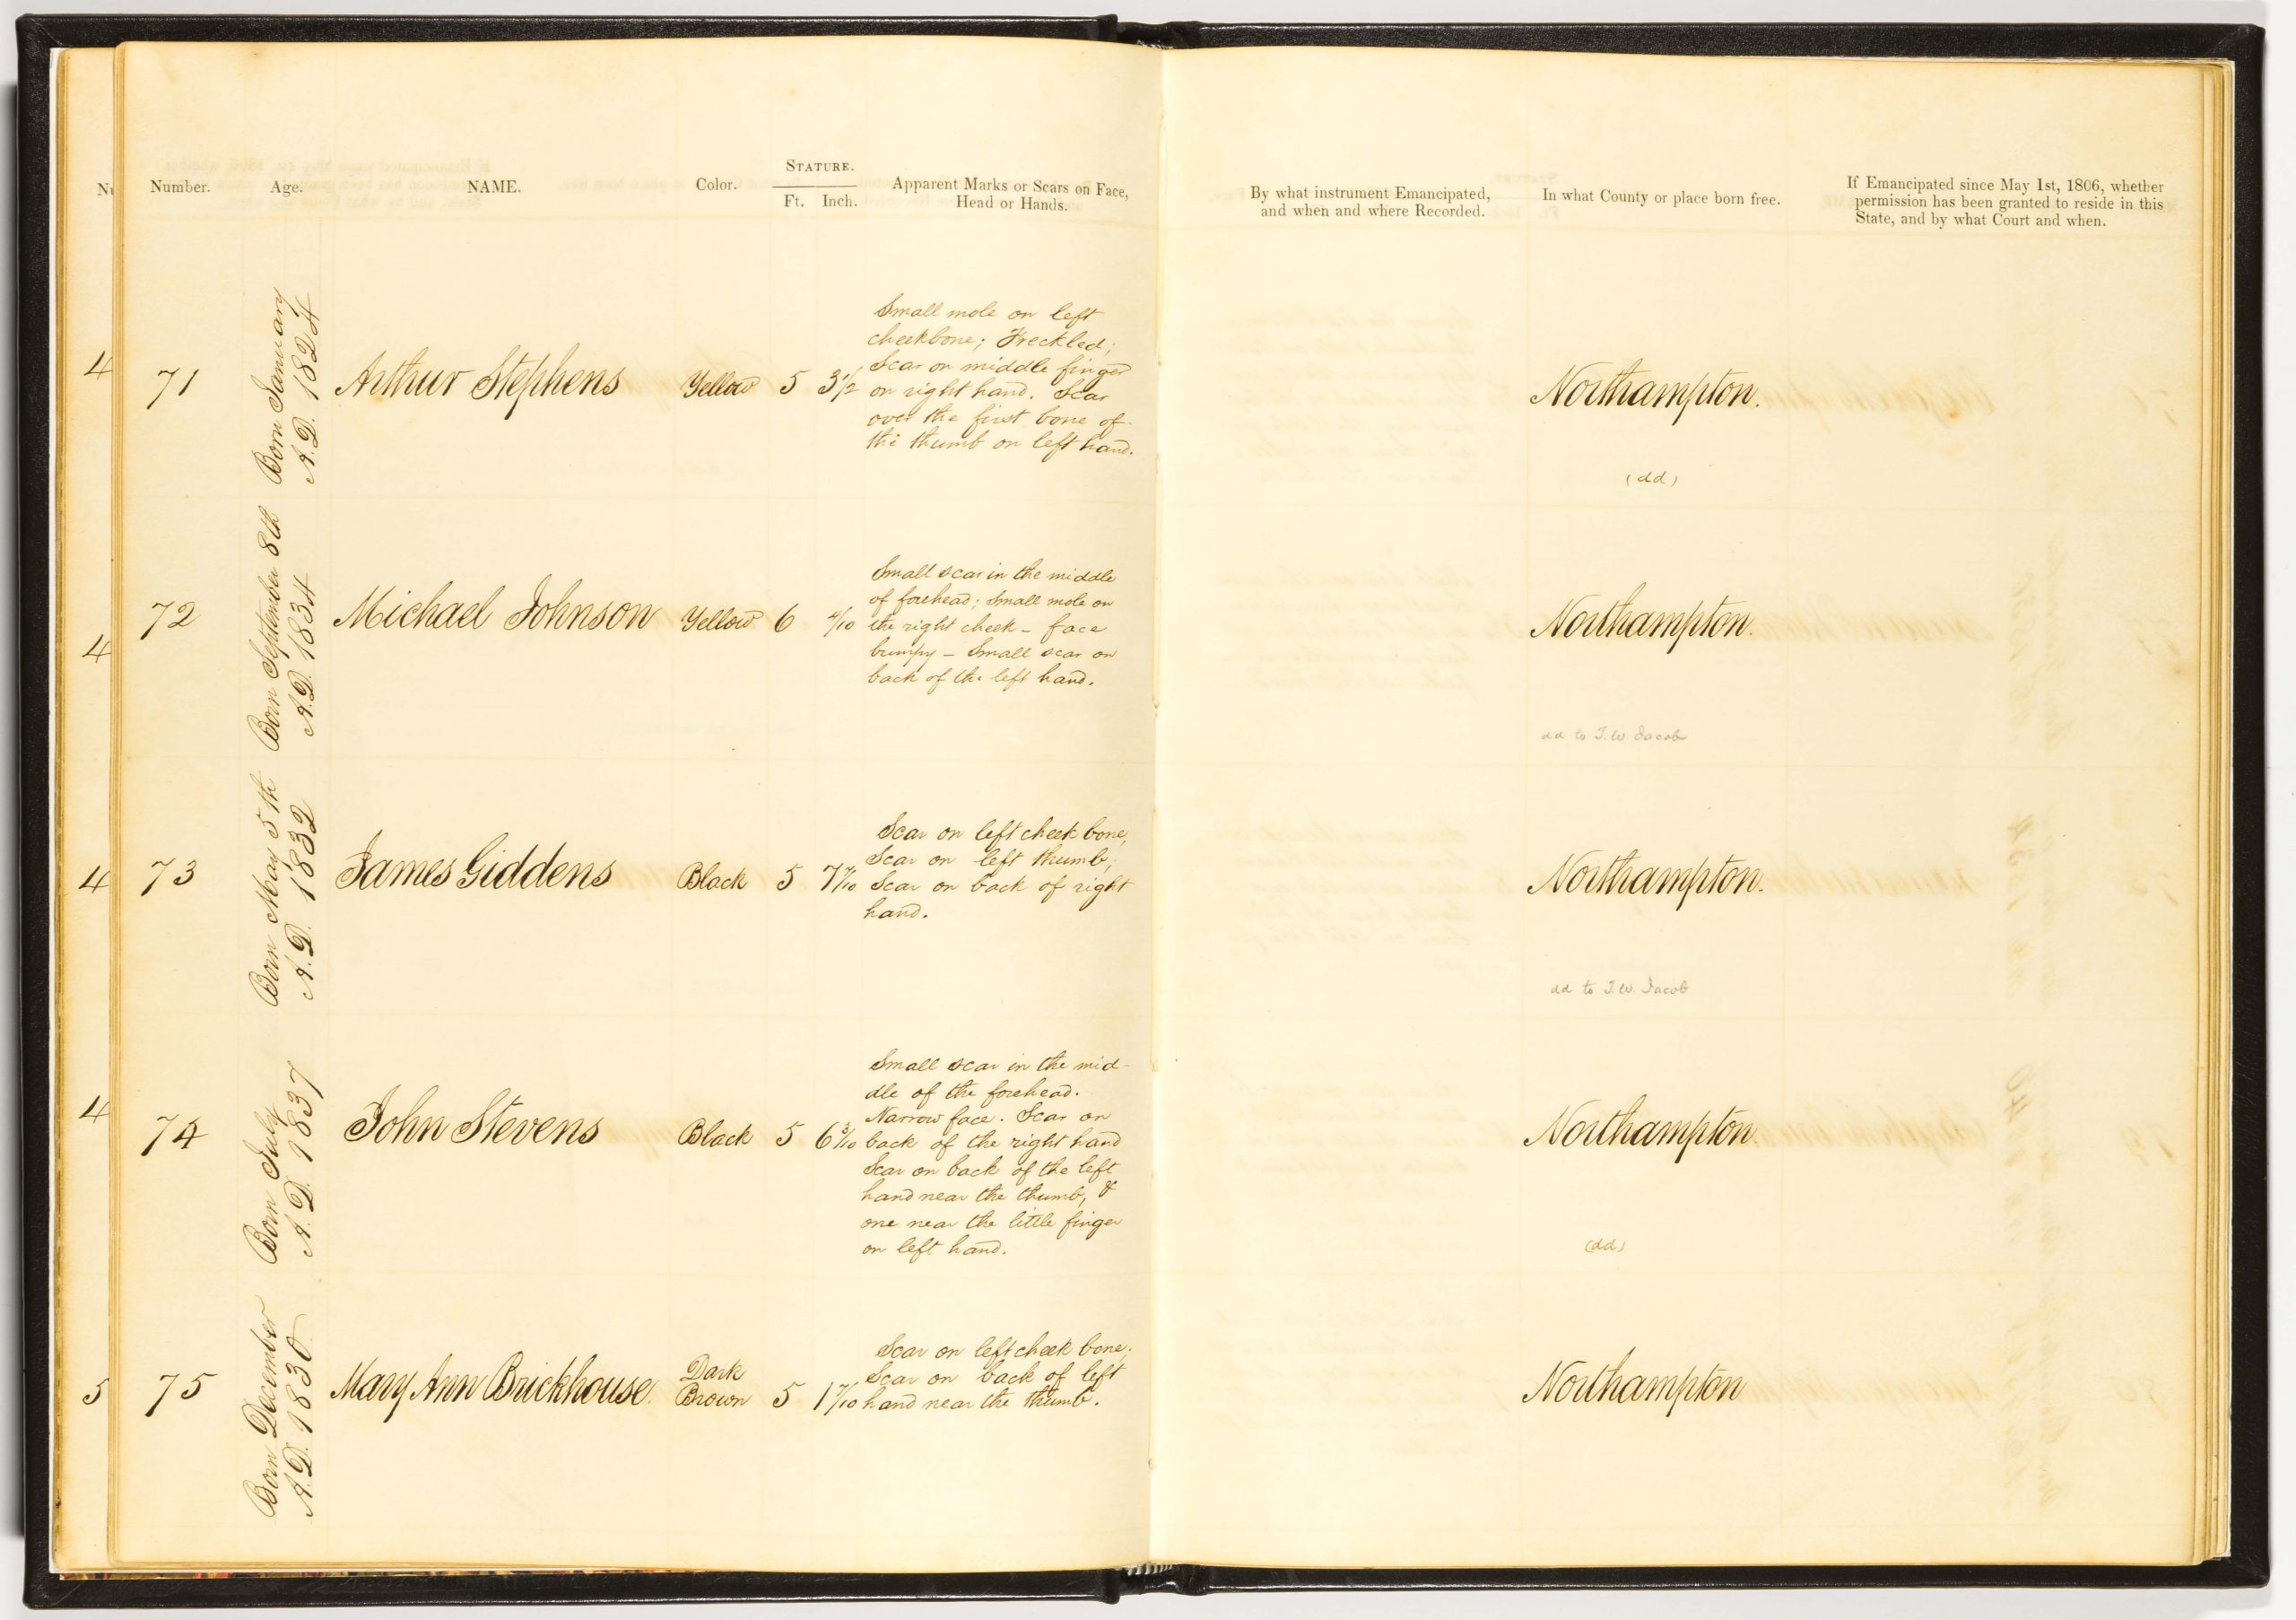 Number. Age. NAME. Color. STATURE. Ft. Inch. Apparent Marks or Scars on Face,
Head or Hands.
By what instrument Emancipated,
and when and where Recorded.
In what County or place born free.
If Emancipated since May 1st, 1806, whether
permission has been granted to reside in this
State, and by what Court and when.
Nu
4
71
Born January
A.D. 1824
Arthur Stephens
Yellow
5
3 1/2
Small mole on left
cheekbone; Freckled;
Scar on middle finger
on right hand. Scar
over the first bone of
the thumb on left hand.
Northampton.
(dd)
4
72
Born September 8th
A.D. 1834
Michael Johnson
Yellow
6
4/10
Small scar in the middle
of forehead; Small mole on
the right cheek - face
bumpy - Small scar on
back of the left hand.
Northampton.
dd to T.W. Jacob
4
73
Born May 5th
A.D. 1832
James Giddens
Black
5
7 7/10
Scar on left cheek bone,
Scar on left thumb;
Scar on back of right
hand.
Northampton.
dd to T.W. Jacob
4
74
Born July
A.D. 1837
John Stevens
Black
5
6 3/10
Small scar in the mid-
dle of the forehead.
Narrow face. Scar on
back of the right hand
Scar on back of the left
hand near the thumb, &
one near the little finger
on left hand.
Northampton
(dd)
5
75
Born December
A.D. 1830
Mary Ann Brickhouse
Dark
Brown
5
1 7/10
Scar on left cheek bone;
Scar on back of left
hand near the thumb.
Northampton